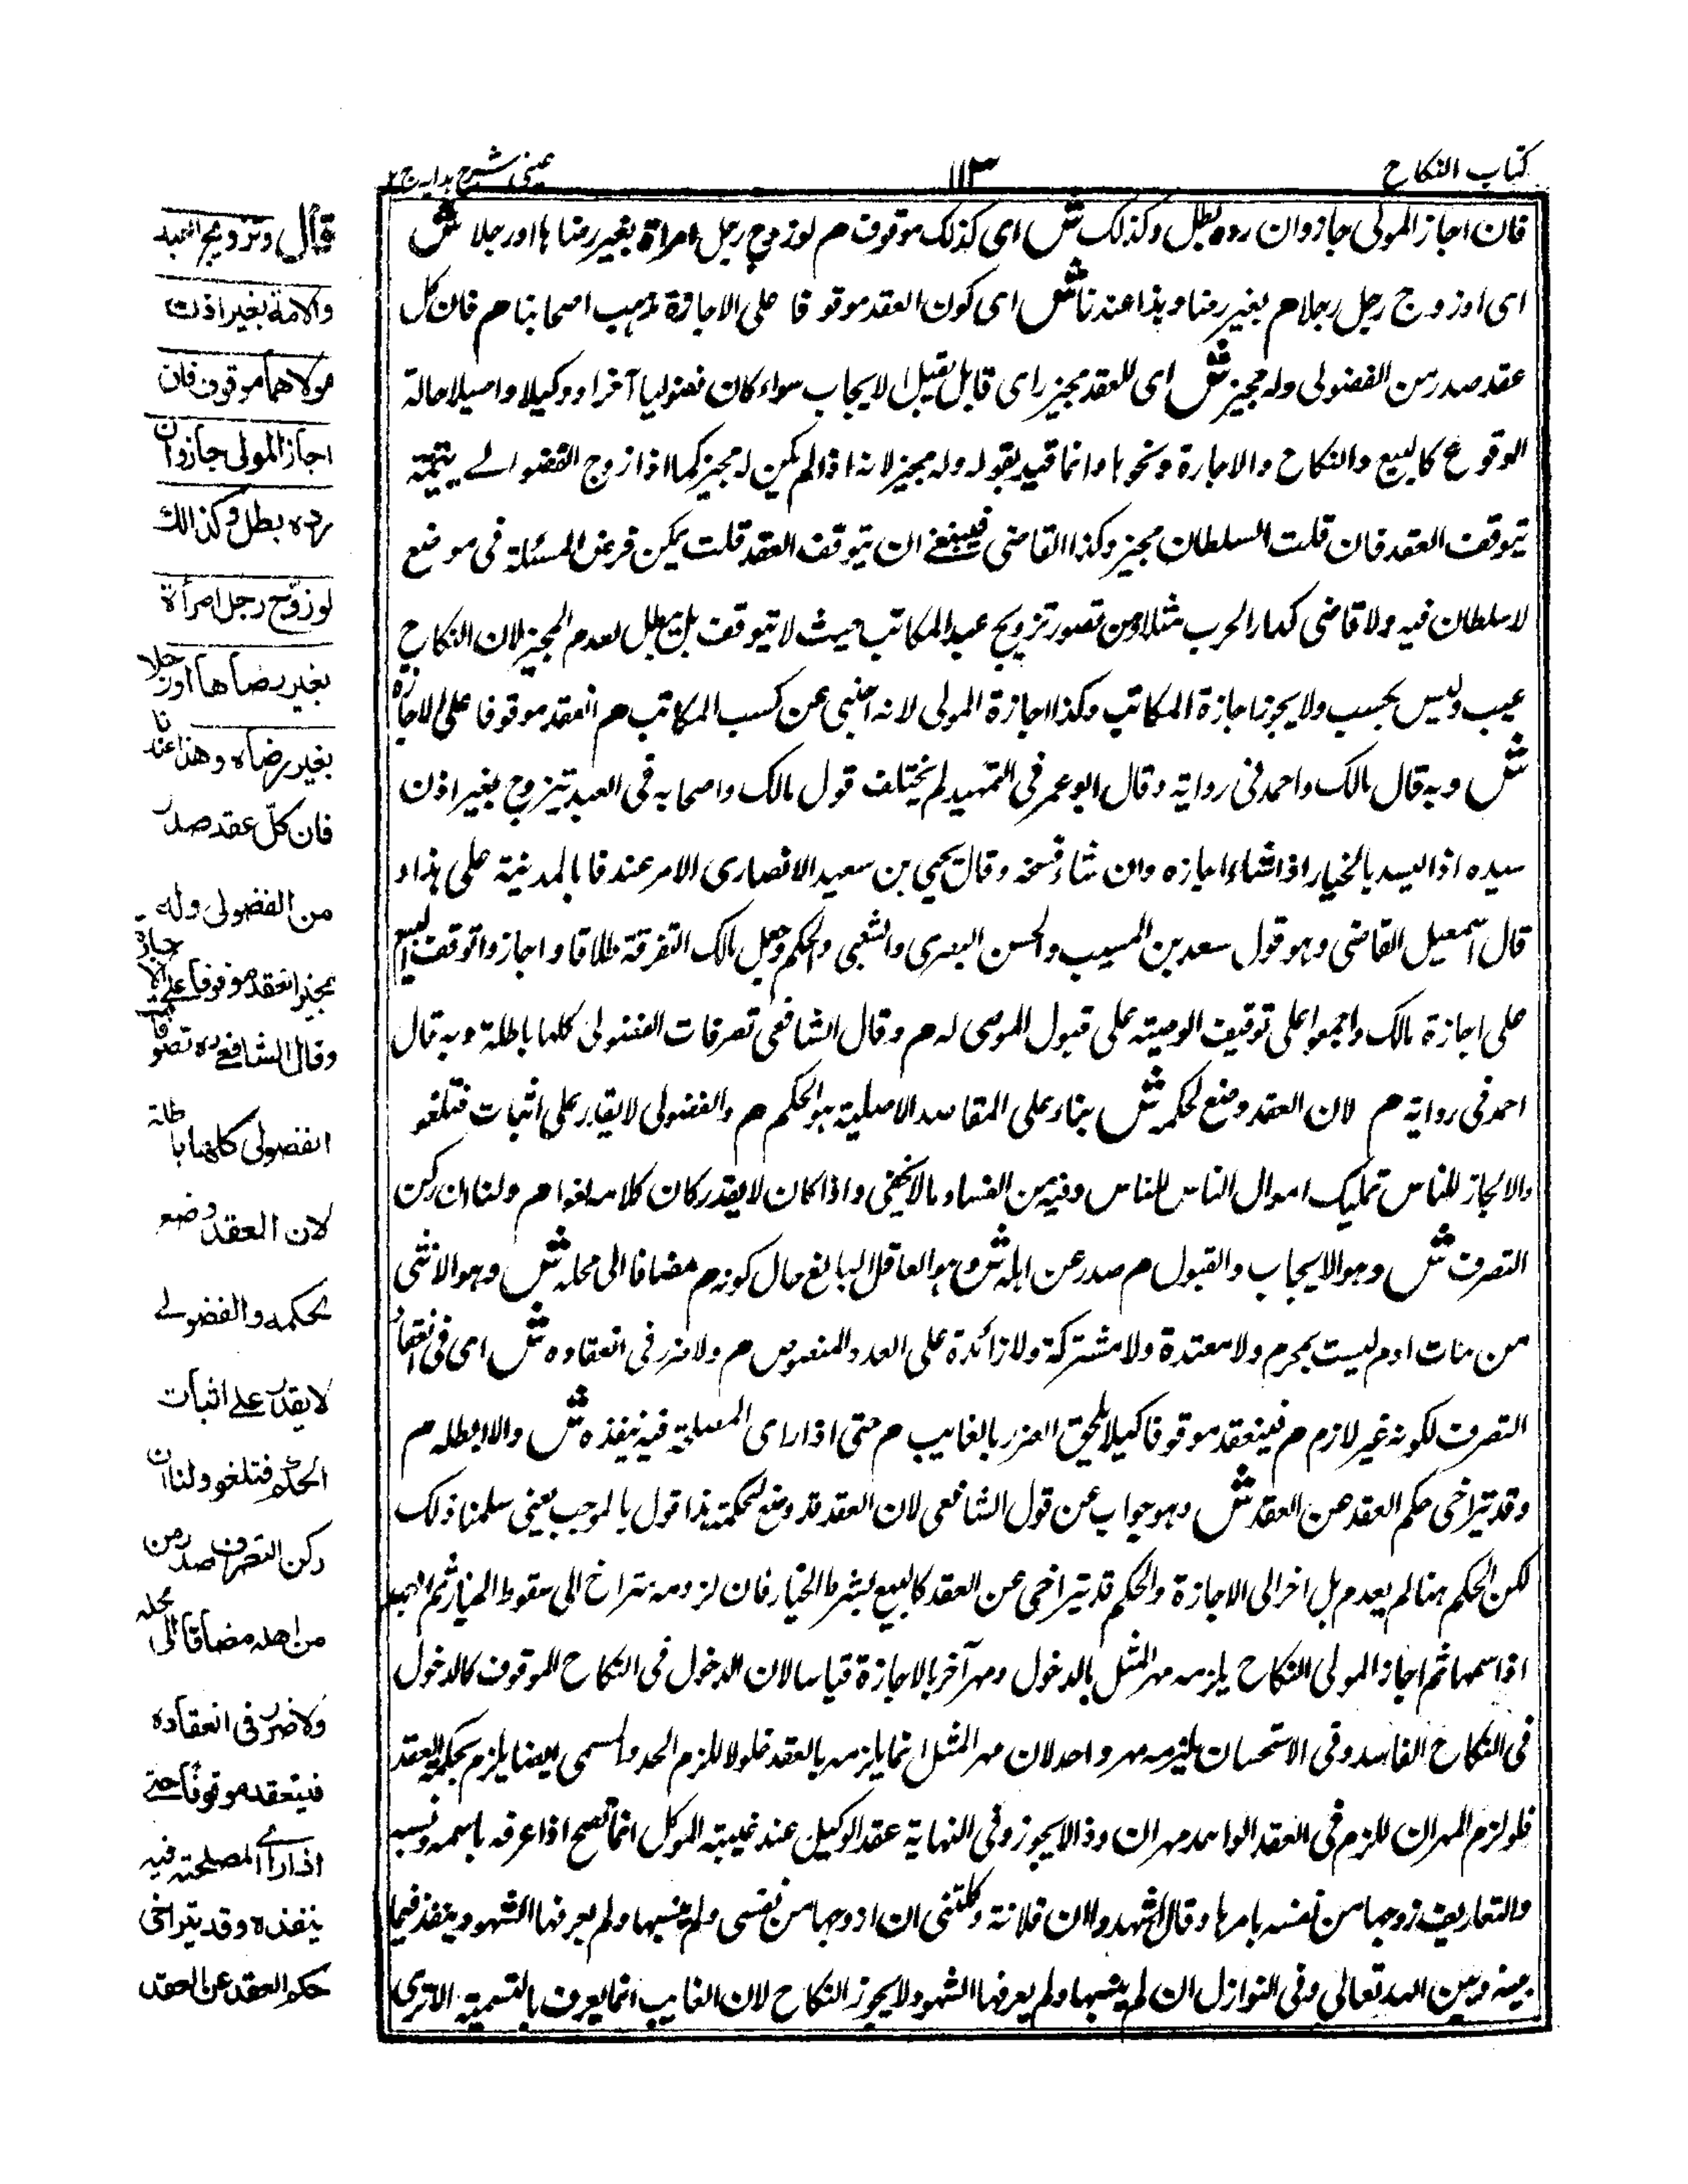 كتاب النكاح
١١٣
عینی شرح هدایه ج ٢
فان اجاز المولى جاز وان رده بطل وكذلك ش اى كذلك موقوف م لو زوج رجل امراة بغير رضاها اور جلا ش
اى او زوج رجل رجلا م بغير رضاه وهذا عندنا ش اى كون العقد موقوفا على الاجازة مذهب اصحابنا م فان كل
عقد صدر من الفضولى وله مجيز ش اى للعقد مجيز اى قابل يقبل الايجاب سواء كان فضوليا آخر او وكيلا واصيلا حالة
الوقوع كالبيع والنكاح والاجارة ونحوها وانما قيد بقوله وله مجيز لانه اذا لم يكن له مجيز كما اذا زوج الفضولى يتيمة
يتوقف العقد فان قلت السلطان مجيز وكذا القاضى فينبغى ان يتوقف العقد قلت يمكن فرض المسئلة فى موضع
لا سلطان فيه ولا قاضى كدار الحرب مثلا ومن تصور تزويج عبد المكاتب حيث لا يتوقف بل يبطل لعدم المجيز لان النكاح
عيب وليس بكسب ولا يجوز اجازة المكاتب وكذا اجازة المولى لانه اجنبى عن كسب المكاتب م انعقد موقوفا على الاجازة
ش وبه قال مالك واحمد فى رواية وقال ابو عمر فى التمهيد لم يختلف قول مالك واصحابه فى العبد يتزوج بغير اذن
سيده اذ السيد بالخيار اذا شاء اجازه وان شاء فسخه وقال يحيى بن سعيد الانصارى الامر عندنا بالمدينة على هذا و
قال اسمعيل القاضى وهو قول سعد بن المسيب والحسن البصرى والشعبى والحكم وجعل مالك التفرقة طلاقا واجازوا توقف البيع
على اجازة مالك واجمعوا على توقيف الوصية على قبول الموصى له م وقال الشافعى تصرفات الفضولى كلها باطلة وبه قال
احمد فى رواية م لان العقد وضع لحكمه ش بناء على المقاصد الاصلية هو الحكم م والفضولى لا يقدر على اثبات فتلغو
والا لجاز للناس تمليك اموال الناس للناس وفيه من الفساد ما لا يخفى واذا كان لا يقدر كان كلامه لغوا م ولنا ان ركن
التصرف ش وهو الايجاب والقبول م صدر عن اهله ش وهو العاقل البالغ حال كونه م مضافا الى محله ش وهو الانثى
من بنات ادم ليست بمحرم ولا معتدة ولا مشتركة ولا زائدة على العدد المنصوص م ولا ضرر فى انعقاده ش اى فى انعقاد
التصرف لكونه غير لازم م فينعقد موقوفا كيلا يلحق الضرر بالغايب م حتى اذا راى المصلحة فيه ينفذه ش والا ابطله م
وقد يتراخى حكم العقد عن العقد ش وهو جواب عن قول الشافعى لان العقد قد وضع لحكمة هذا قول بالموجب يعنى سلمنا ذلك
لكن الحكم هنا لم يعدم بل اخر الى الاجازة والحكم قد يتراخى عن العقد كالبيع بشرط الخيار فان لزومه متراخ الى سقوط الخيار ثم المهر
اذا سمها ثم اجاز المولى النكاح يلزمه مهر المثل بالدخول ومهر آخر بالاجازة قياسا لان الدخول فى النكاح الموقوف كالدخول
فى النكاح الفاسد وفى الاستحسان يلزمه مهر واحد لان مهر المثل انما يلزمه بالعقد فلولا للزم الحد والمسمى ايضا يلزم بحكم العقد
فلو لزم المهران للزم فى العقد الواحد مهران وذا لا يجوز وفى النهاية عقد الوكيل عند غيبته الموكل انما يصح اذا عرفه باسمه ونسبه
والتعاريف زوجها من نفسه بامرها وقال اشهدوا ان فلانة وكلتنى ان ازوجها من نفسى ولم ينسبها ولم يعرفها الشهود ينفذ فيما
بينه وبين الله تعالى وفى النوازل ان لم ينسبها ولم يعرفها الشهود لا يجوز النكاح لان الغايب انما يعرف بالتسمية الا ترى
قال وتزويج العبد
والامة بغير اذن
مولاهما موقوف فان
اجاز المولى جاز وان
رده بطل وكذالك
لو زوّج رجل امرأة
بغير رضاها اورجلا
بغير رضاه وهذا عندنا
فان كلّ عقد صدر
من الفضولى وله
مجيز انعقد موقوفا على الاجازة
وقال الشافعى ره تصرفات
الفضولى كلها باطلة
لان العقد وضع
لحكمه والفضولى
لا يقدر على اثبات
الحكم فتلغو ولنا ان
ركن التصرف صدر من
من اهله مضافا الى محله
ولا ضرر فى انعقاده
فينعقد موقوفا حتى
اذا رأى المصلحة فيه
ينفذه وقد يتراخى
حكم العقد عن العقد